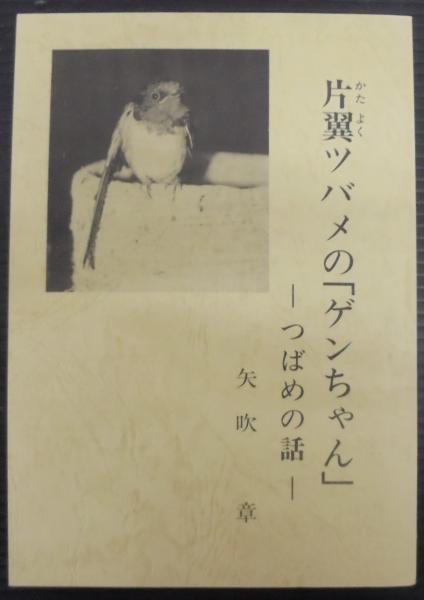 片翼ツバメの「ゲンちゃん」
かたよく
―つばめの話―
矢吹章